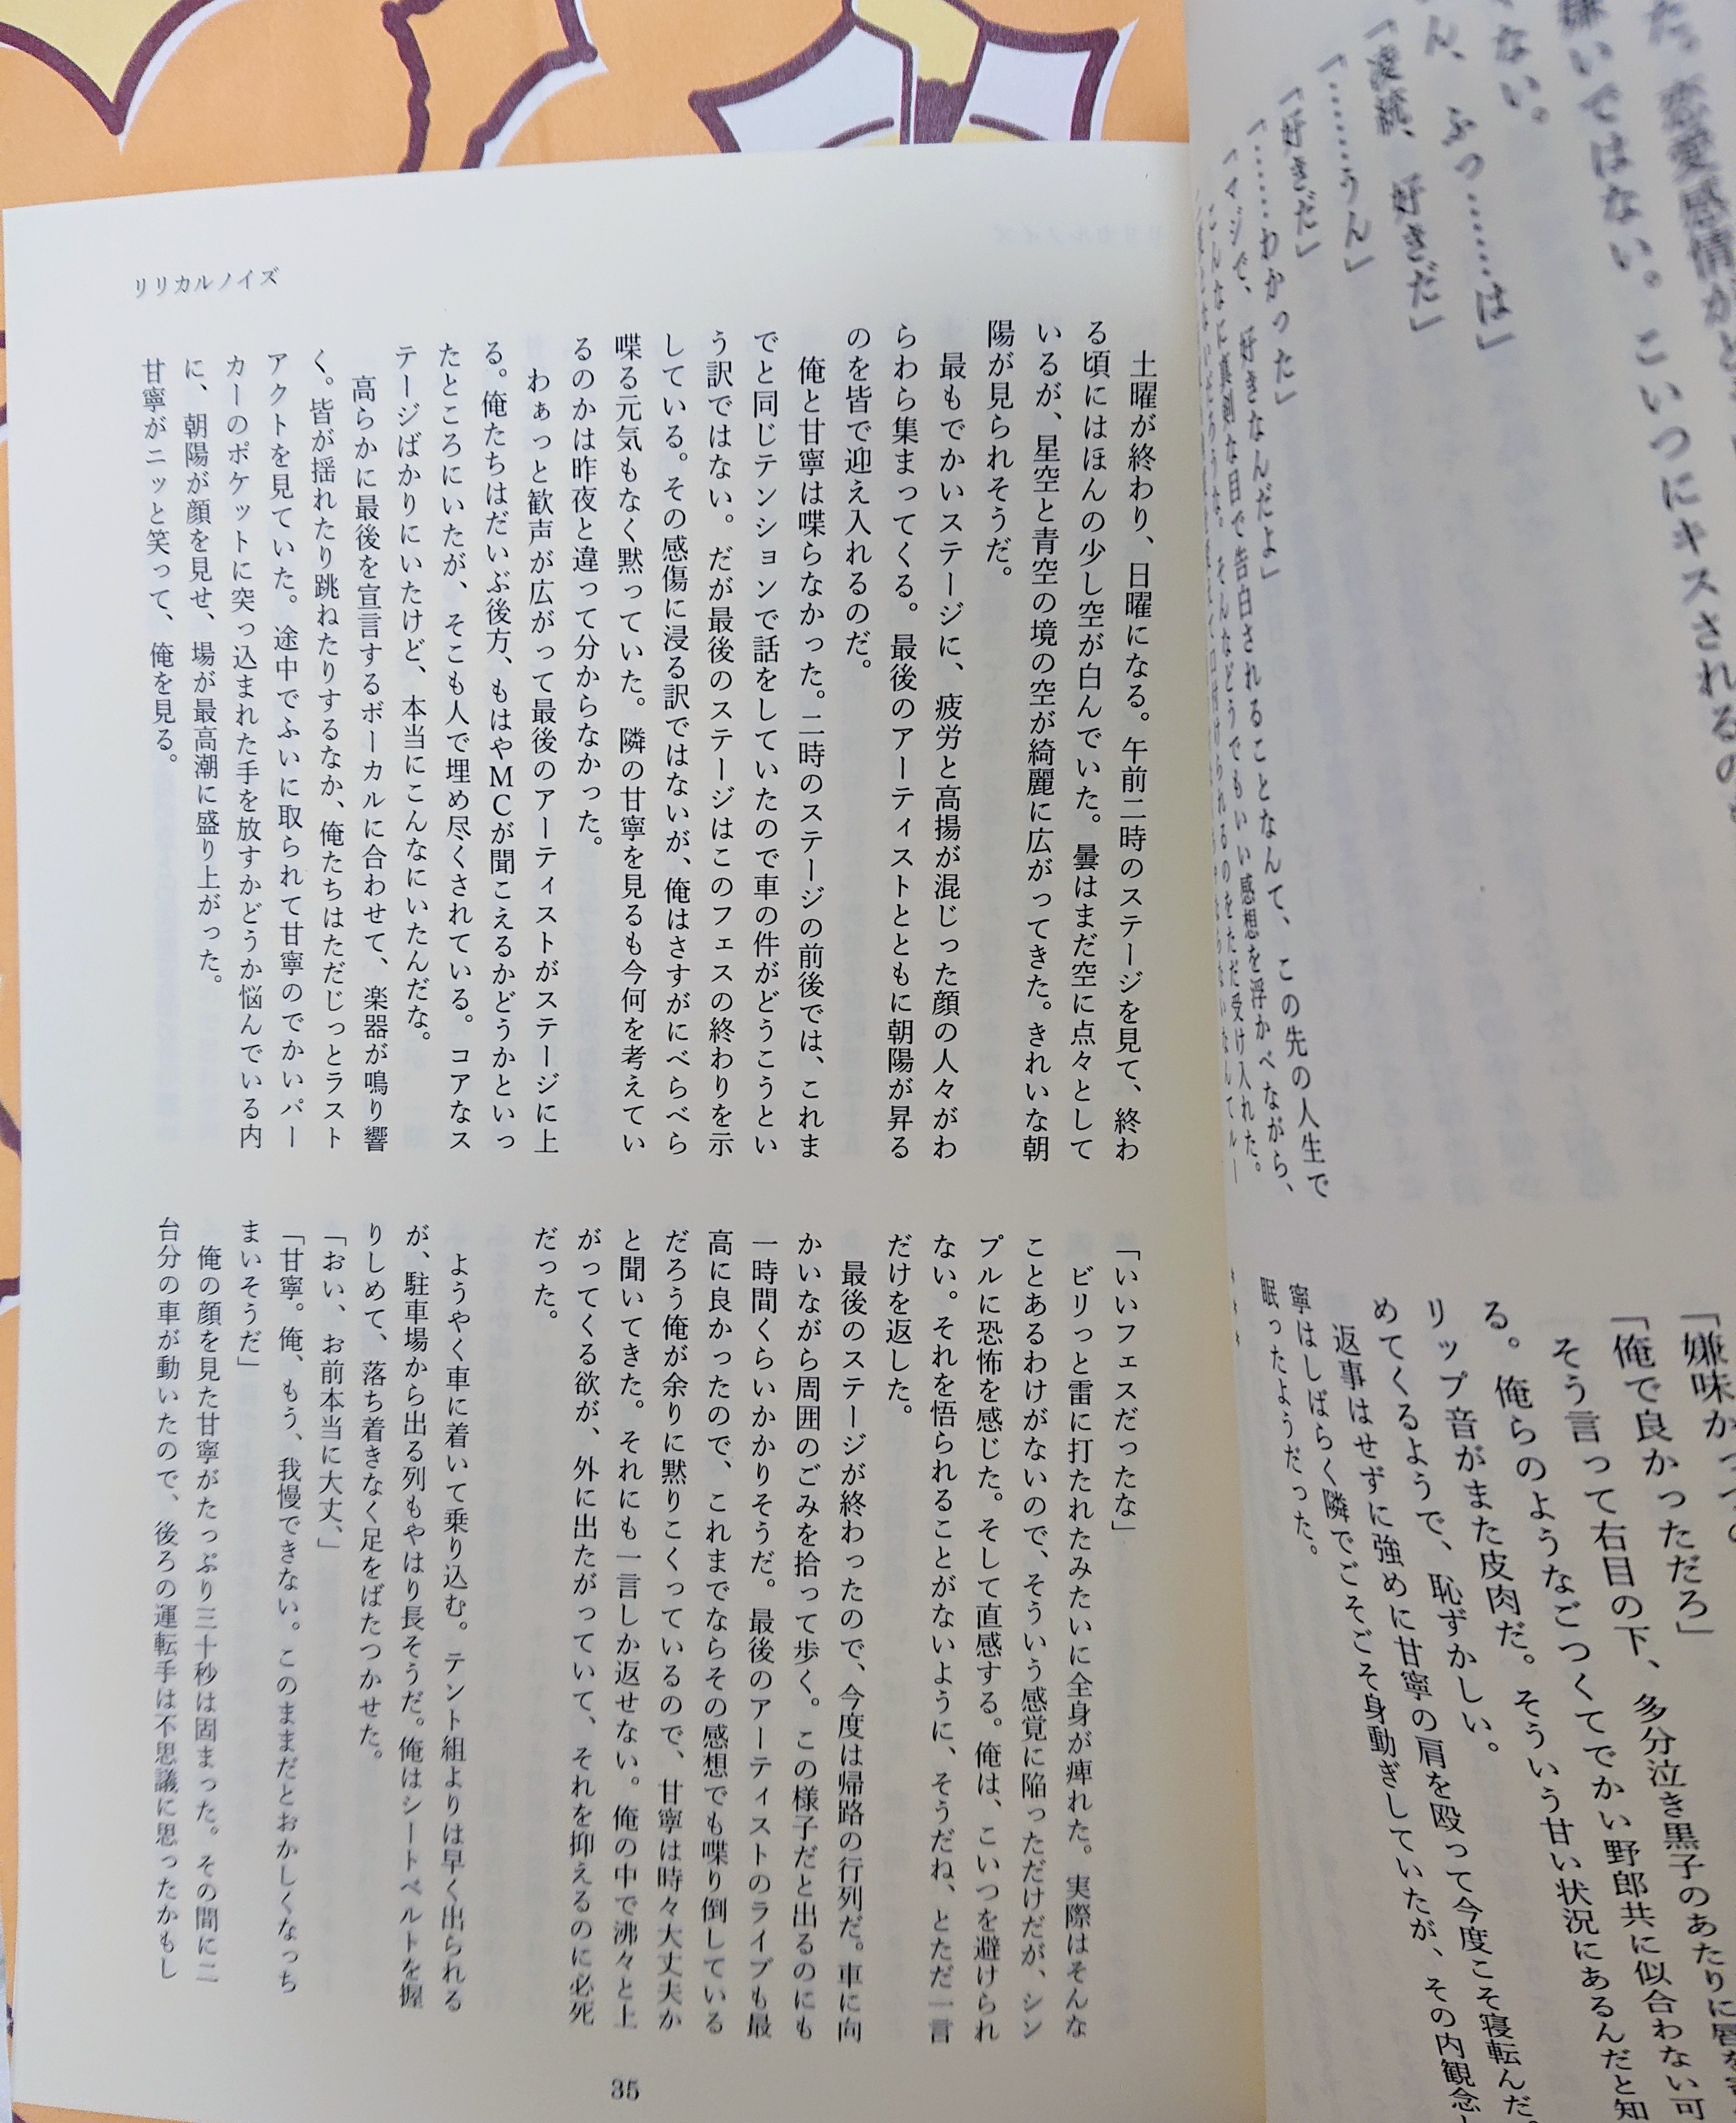 た。恋愛感情が
嫌いではない。こいつにキスされるの
ない。
ん、ふっ……は」
「凌統、好きだ」
「……うん」
「好きだ」
「……わかった」
「マジで、好きなんだよ」
こんなに真剣な目で告白されることなんて、この先の人生で
そんなどうでもいい感想を浮かべながら、
のをただ受け入れた。
「嫌味か
「俺で良かっただろ」
そう言って右目の下、多分泣き黒子のあたりに唇を
る。俺らのようなごつくてでかい野郎共に似合わない可
リップ音がまた皮肉だ。そういう甘い状況にあるんだと知
めてくるようで、恥ずかしい。
返事はせずに強めに甘寧の肩を殴って今度こそ寝転んだ。
寧はしばらく隣でごそごそ身動ぎしていたが、その内観念
眠ったようだった。
***
リリカルノイズ
土曜が終わり、日曜になる。午前二時のステージを見て、終わ
る頃にはほんの少し空が白んでいた。曇はまだ空に点々として
いるが、星空と青空の境の空が綺麗に広がってきた。きれいな朝
陽が見られそうだ。
最もでかいステージに、疲労と高揚が混じった顔の人々がわ
らわら集まってくる。最後のアーティストとともに朝陽が昇る
のを皆で迎え入れるのだ。
俺と甘寧は喋らなかった。二時のステージの前後では、これま
でと同じテンションで話をしていたので車の件がどうこうとい
う訳ではない。だが最後のステージはこのフェスの終わりを示
している。その感傷に浸る訳ではないが、俺はさすがにべらべら
喋る元気もなく黙っていた。隣の甘寧を見るも今何を考えてい
るのかは昨夜と違って分からなかった。
わぁっと歓声が広がって最後のアーティストがステージに上
る。俺たちはだいぶ後方、もはやMCが聞こえるかどうかといっ
たところにいたが、そこも人で埋め尽くされている。コアなス
テージばかりにいたけど、本当にこんなにいたんだな。
高らかに最後を宣言するボーカルに合わせて、楽器が鳴り響
く。皆が揺れたり跳ねたりするなか、俺たちはただじっとラスト
アクトを見ていた。途中でふいに取られて甘寧のでかいパー
カーのポケットに突っ込まれた手を放すかどうか悩んでいる内
に、朝陽が顔を見せ、場が最高潮に盛り上がった。
甘寧がニッと笑って、俺を見る。
「いいフェスだったな」
ビリっと雷に打たれたみたいに全身が痺れた。実際はそんな
ことあるわけがないので、そういう感覚に陥っただけだが、シン
プルに恐怖を感じた。そして直感する。俺は、こいつを避けられ
ない。それを悟られることがないように、そうだね、とただ一言
だけを返した。
最後のステージが終わったので、今度は帰路の行列だ。車に向
かいながら周囲のごみを拾って歩く。この様子だと出るのにも
一時間くらいかかりそうだ。最後のアーティストのライブも最
高に良かったので、これまでならその感想でも喋り倒している
だろう俺が余りに黙りこくっているので、甘寧は時々大丈夫か
と聞いてきた。それにも一言しか返せない。俺の中で沸々と上
がってくる欲が、外に出たがっていて、それを抑えるのに必死
だった。
ようやく車に着いて乗り込む。テント組よりは早く出られる
が、駐車場から出る列もやはり長そうだ。俺はシートベルトを握
りしめて、落ち着きなく足をばたつかせた。
「おい、お前本当に大丈、」
「甘寧。俺、もう、我慢できない。このままだとおかしくなっち
まいそうだ」
俺の顔を見た甘寧がたっぷり三十秒は固まった。その間に二
台分の車が動いたので、後ろの運転手は不思議に思ったかもし
35